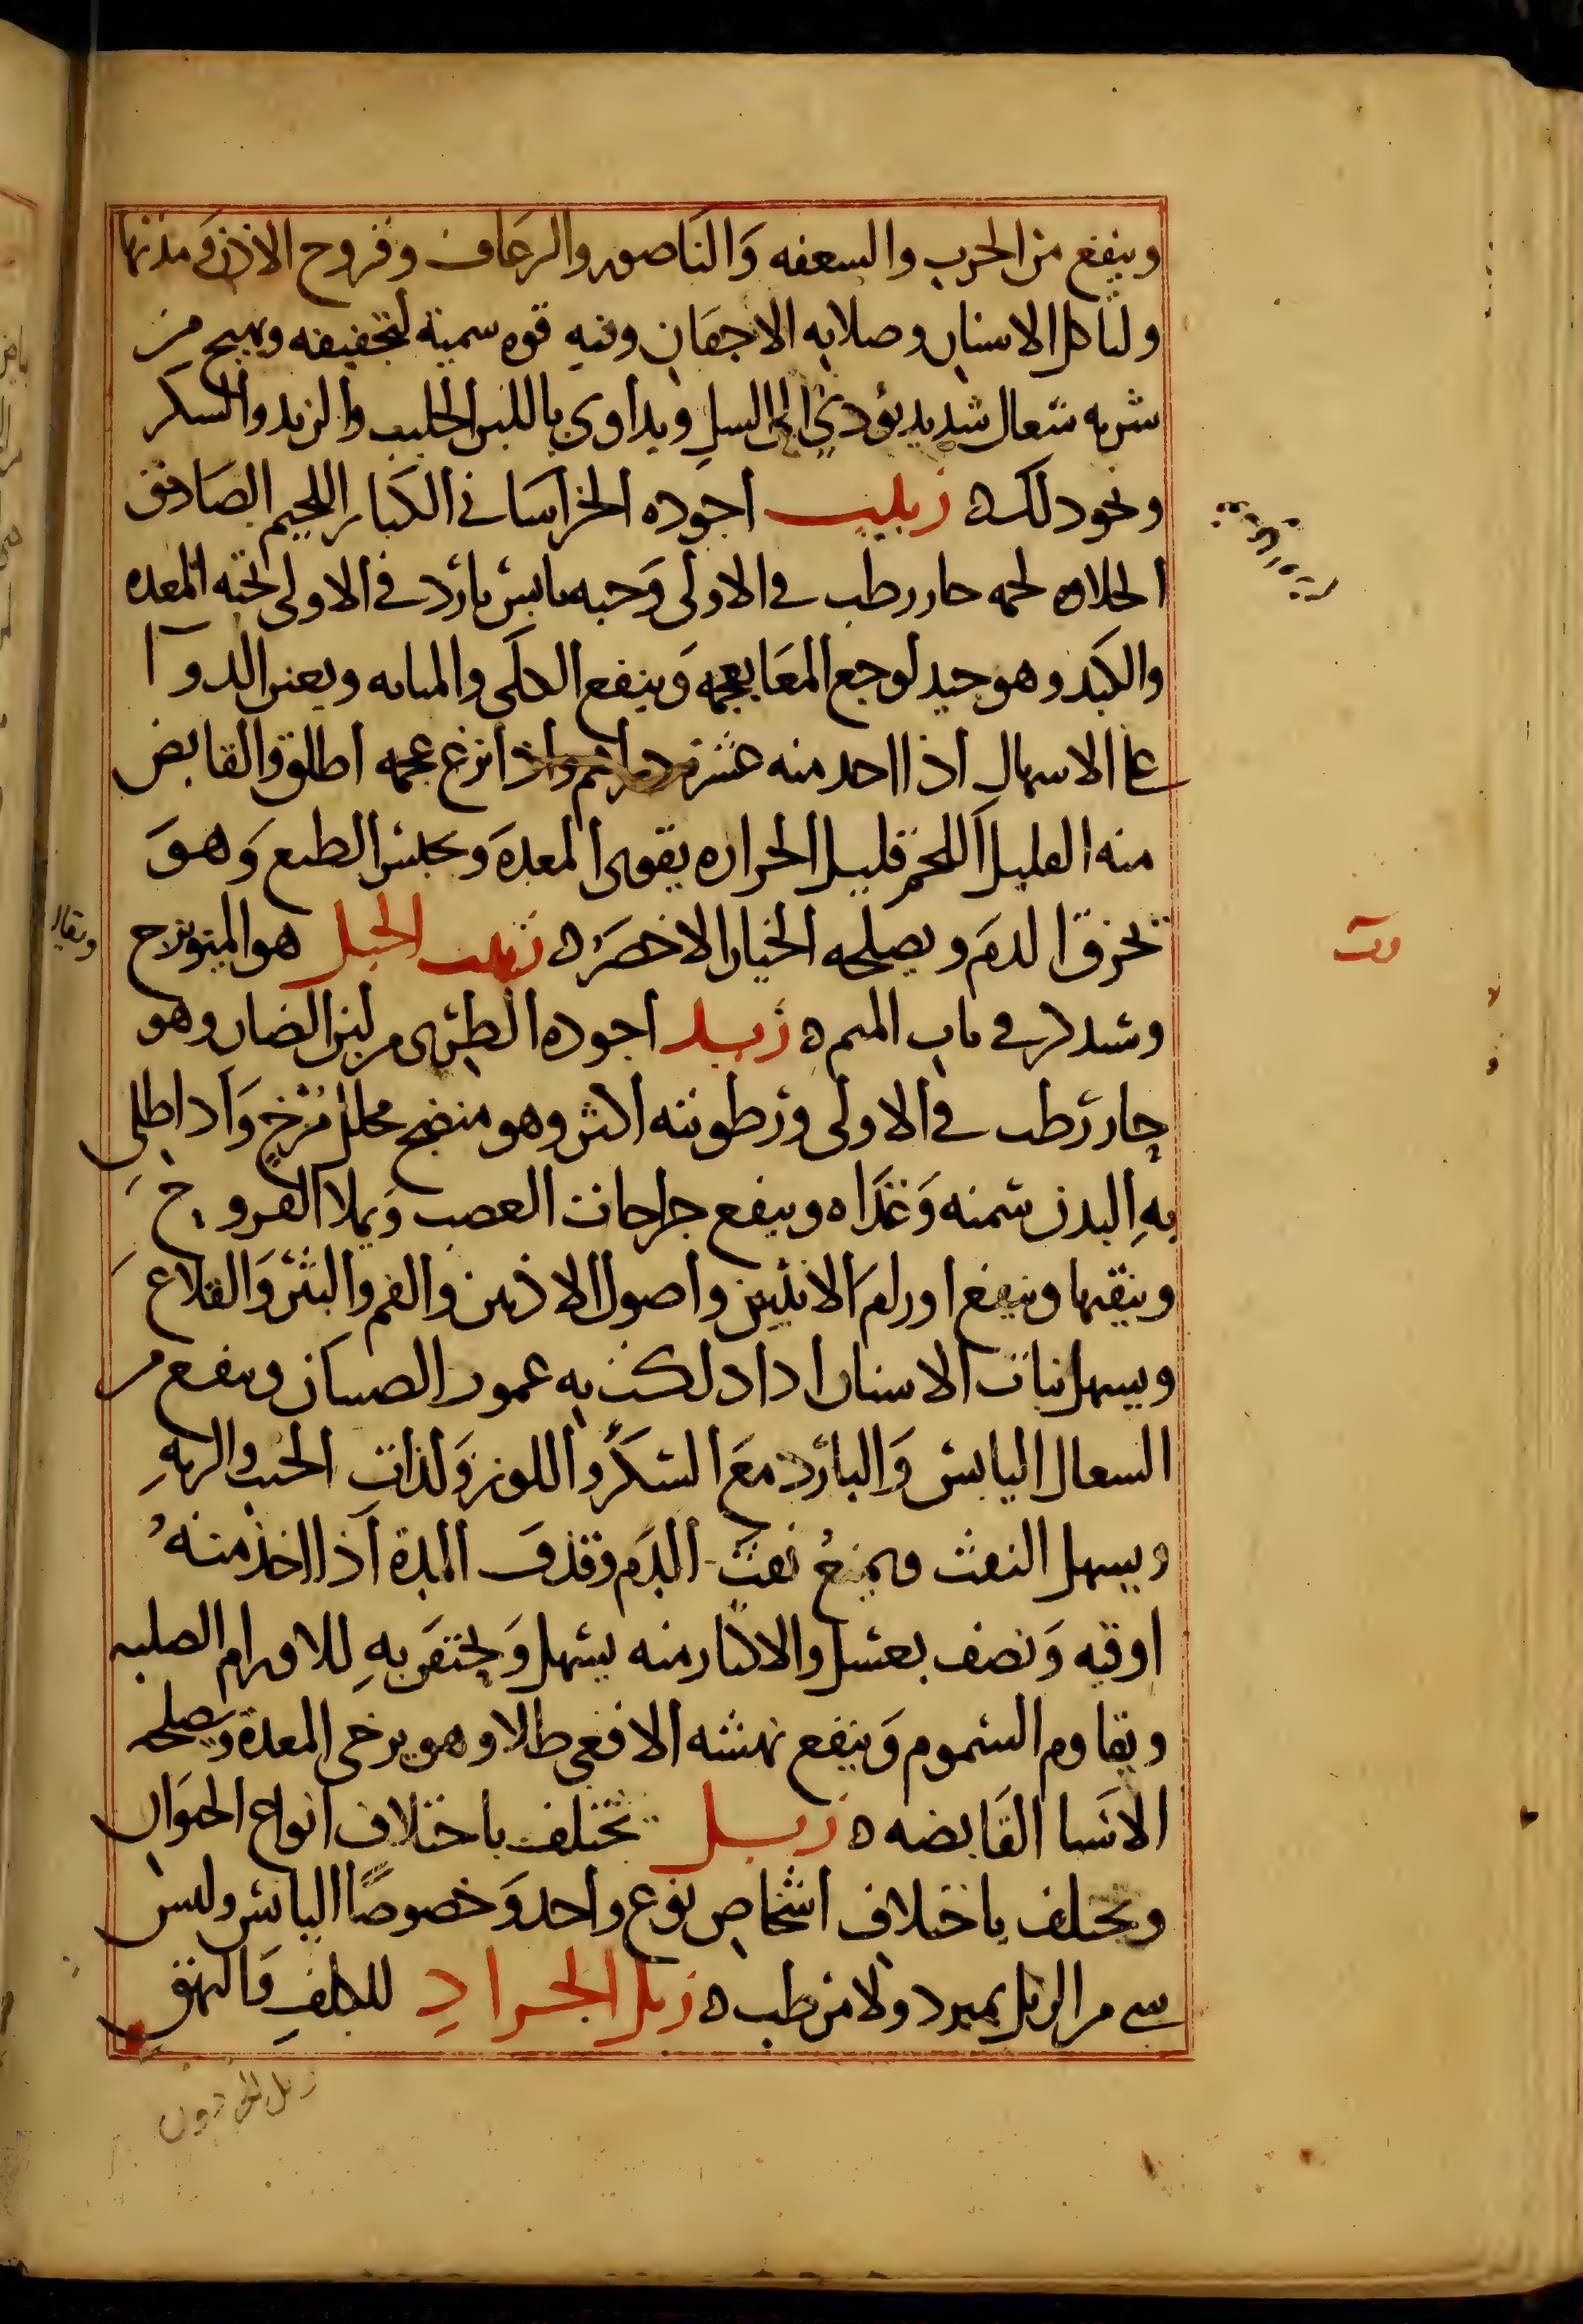 وينفع من الجرب والسعفه وَالناصور والرعاف وقروح الاذن ومدتها
ولتاكل الاسنان وصلابه الاجفان وفيه قوه سمية لتجفيفه ويهيج من
شربه سعال شديد يؤدي الى السل ويداوى باللبن الحليب والزبد والسكر
ونحو ذلك ه زبيب اجوده الخراساني الكبار اللحيم الصادق
الحلاوه لحمه حار رطب في الاولى وَحبه يابس بارد في الاولى تحبه المعده
والكبد وهو جيد لوجع المعَا بعجمه وَينفع الكلى والمثانه ويعين الدوآ
على الاسهال اذا اخذ منه عشره دراهم واذا نزع عجمه اطلق والقابض
منه القليل اللحم قليل الحراره يقوى المعدة وَيحبس الطبع وَهوَ
يحرق الدم ويصلحه الخيار الاخضر ه زبيب الجبل هو الميويزج
وسيذكر في باب الميم ه زبد اجوده الطرى من لبن الضان وهو
حار رطب في الاولى ورطوبته اكثر وهو منضج محلل مُرْخٍ وَاذا طلى
بهِ البدن سمنه وَغذاه وينفع جراحات العصب وَيملا القروح
وينقيها وينفع اورام الانثيين واصول الاذنين والفم والبثر وَالقلاع
ويسهل نبات الاسنان اذا دلكت به عمور الصبيان وينفع من
السعال اليابس وَالبارد معَ السكر واللوز وَلذات الجنب والريهِ
ويسهل النفث ويمنعُ نفث الدم وقذف المدة اذا اخذ منهُ
اوقيه وَنصف بعسل والاكثار منه يسهل وَيحتقن بهِ للاورام الصلبه
ويقاوم السموم وَينفع نهشه الافعى طلا وهو يرخى المعدة ويصلحه
الاشيا القَابضه ه زبل يختلف باختلاف انواع الحيوان
ويختلف باختلاف اشخاص نوع واحد وَخصوصًا اليابس وليس
شي من الزبل يمبرد ولا مرطب ه زبل الجرادِ للكلفِ وَالبهق
زبل الحردون
ويقال